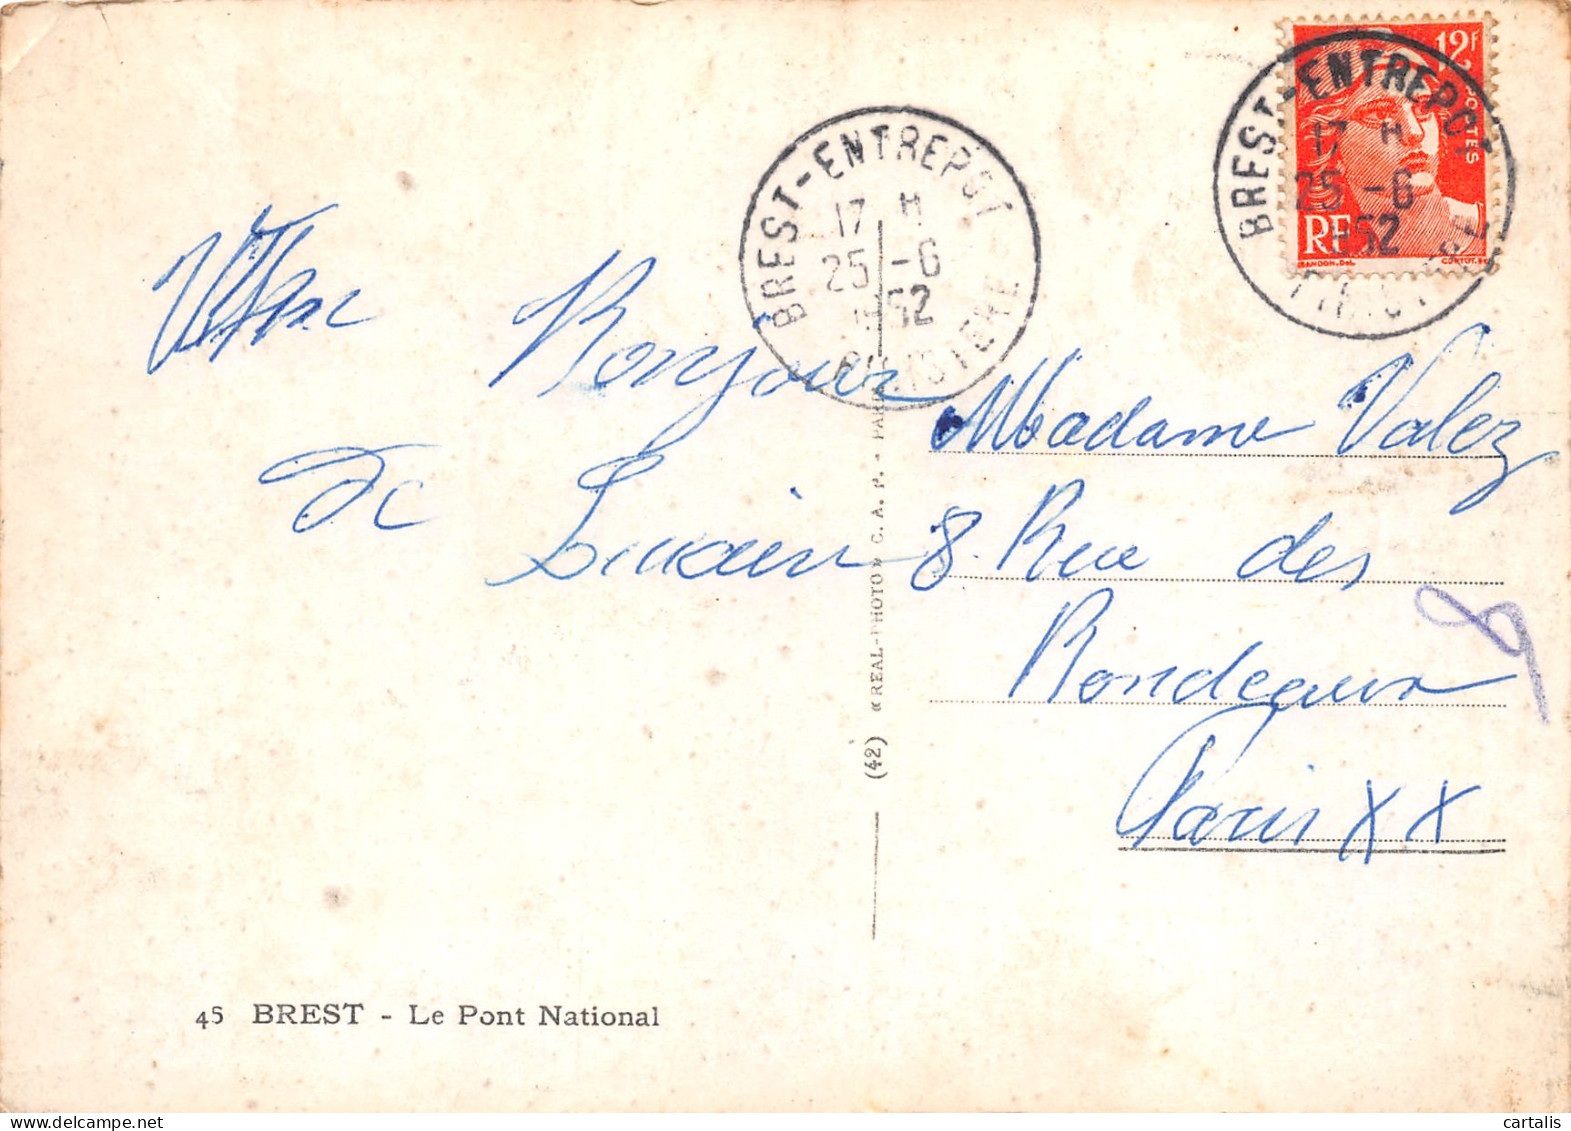 Un Bonjour
de Lucien
BREST-ENTREPOT
17 H
25 -6
1952
FINISTERE
BREST-ENTREPOT
17 H
25 -6
1952
FINISTERE
12F
POSTES
RF
GANDON.DEL
CORTOT.SC
Madame Valez
8 Rue des
Rondeaux
Paris XX
(42) «REAL-PHOTO» C. A. P. - PARIS
45 BREST - Le Pont National
cartalis